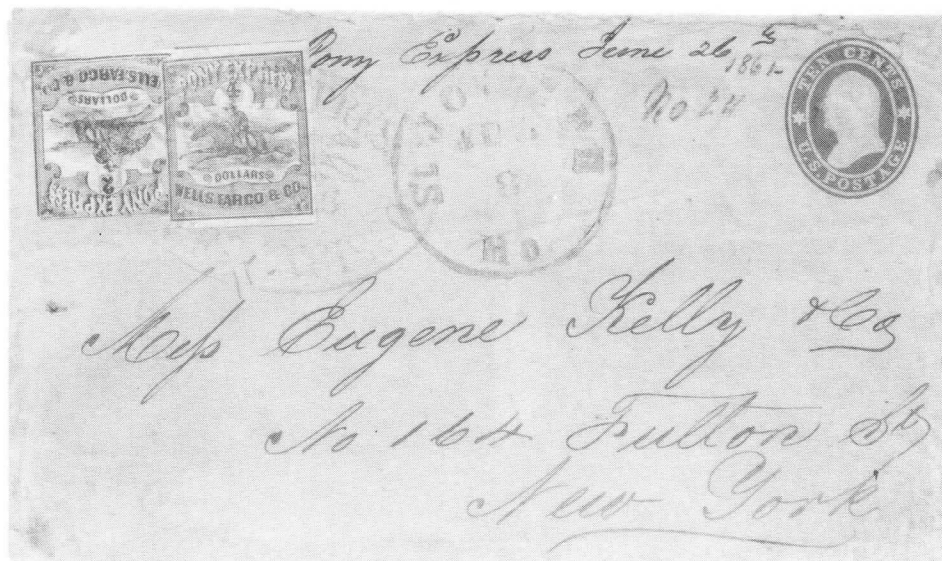 Pony Express June 26th
1861
No 24
WELLS FARGO & CO.
DOLLARS
PONY EXPRESS
PONY EXPRESS
DOLLARS
WELLS FARGO & CO.
TEN CENTS
U.S. POSTAGE
Mess Eugene Kelly & Co
No 164 Fulton St
New York